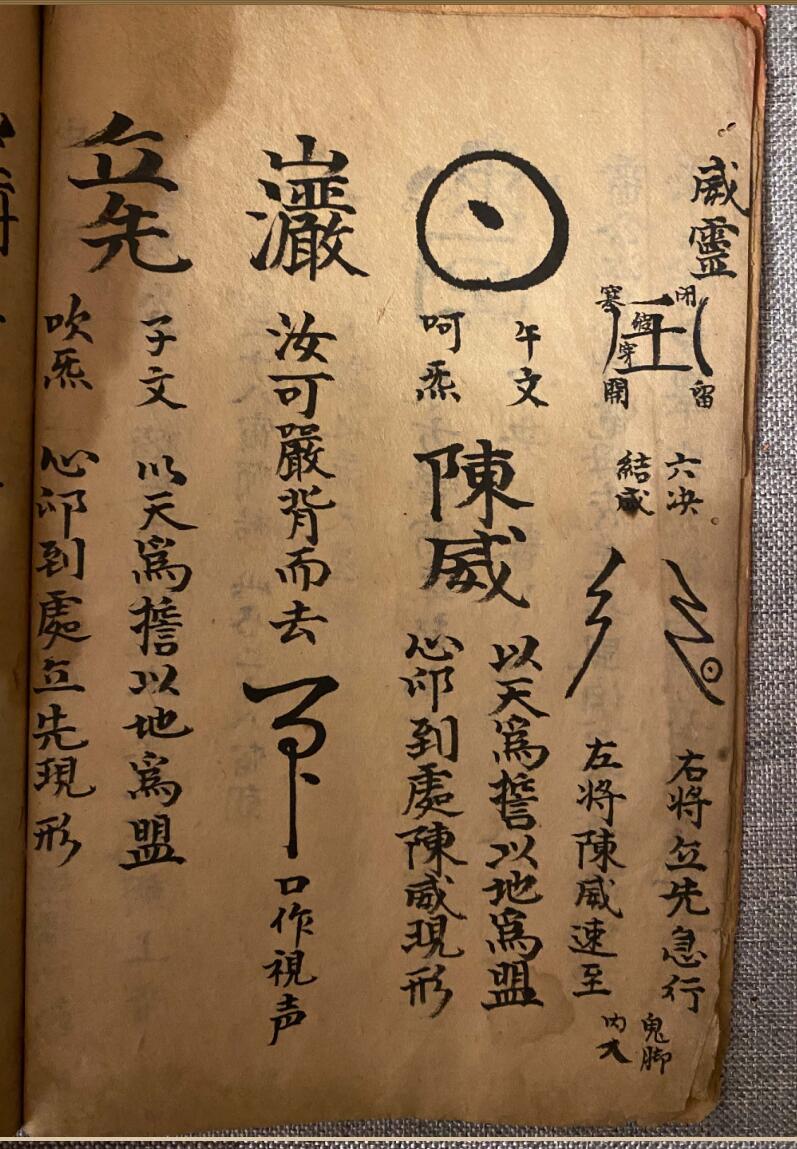 威靈
閉
塞
留
開
六決
結威
右將丘先急行
左將陳威速至
鬼脚
內入
午文
呵炁
陳威
以天爲誓以地爲盟
心印到處陳威現形
汝可嚴背而去
口作視声
丘先
子文
以天爲誓以地爲盟
吹炁
心印到處丘先現形